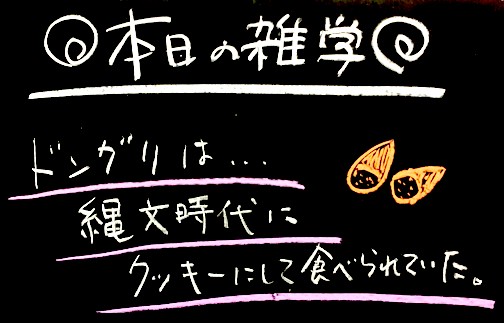 本日の雑学
ドングリは...
縄文時代に
クッキーにして食べられていた。